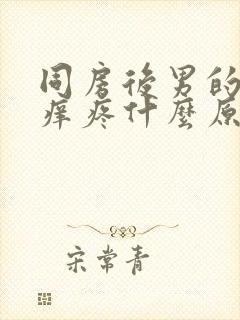 同房後男的
痒疼什麽原
宋常青